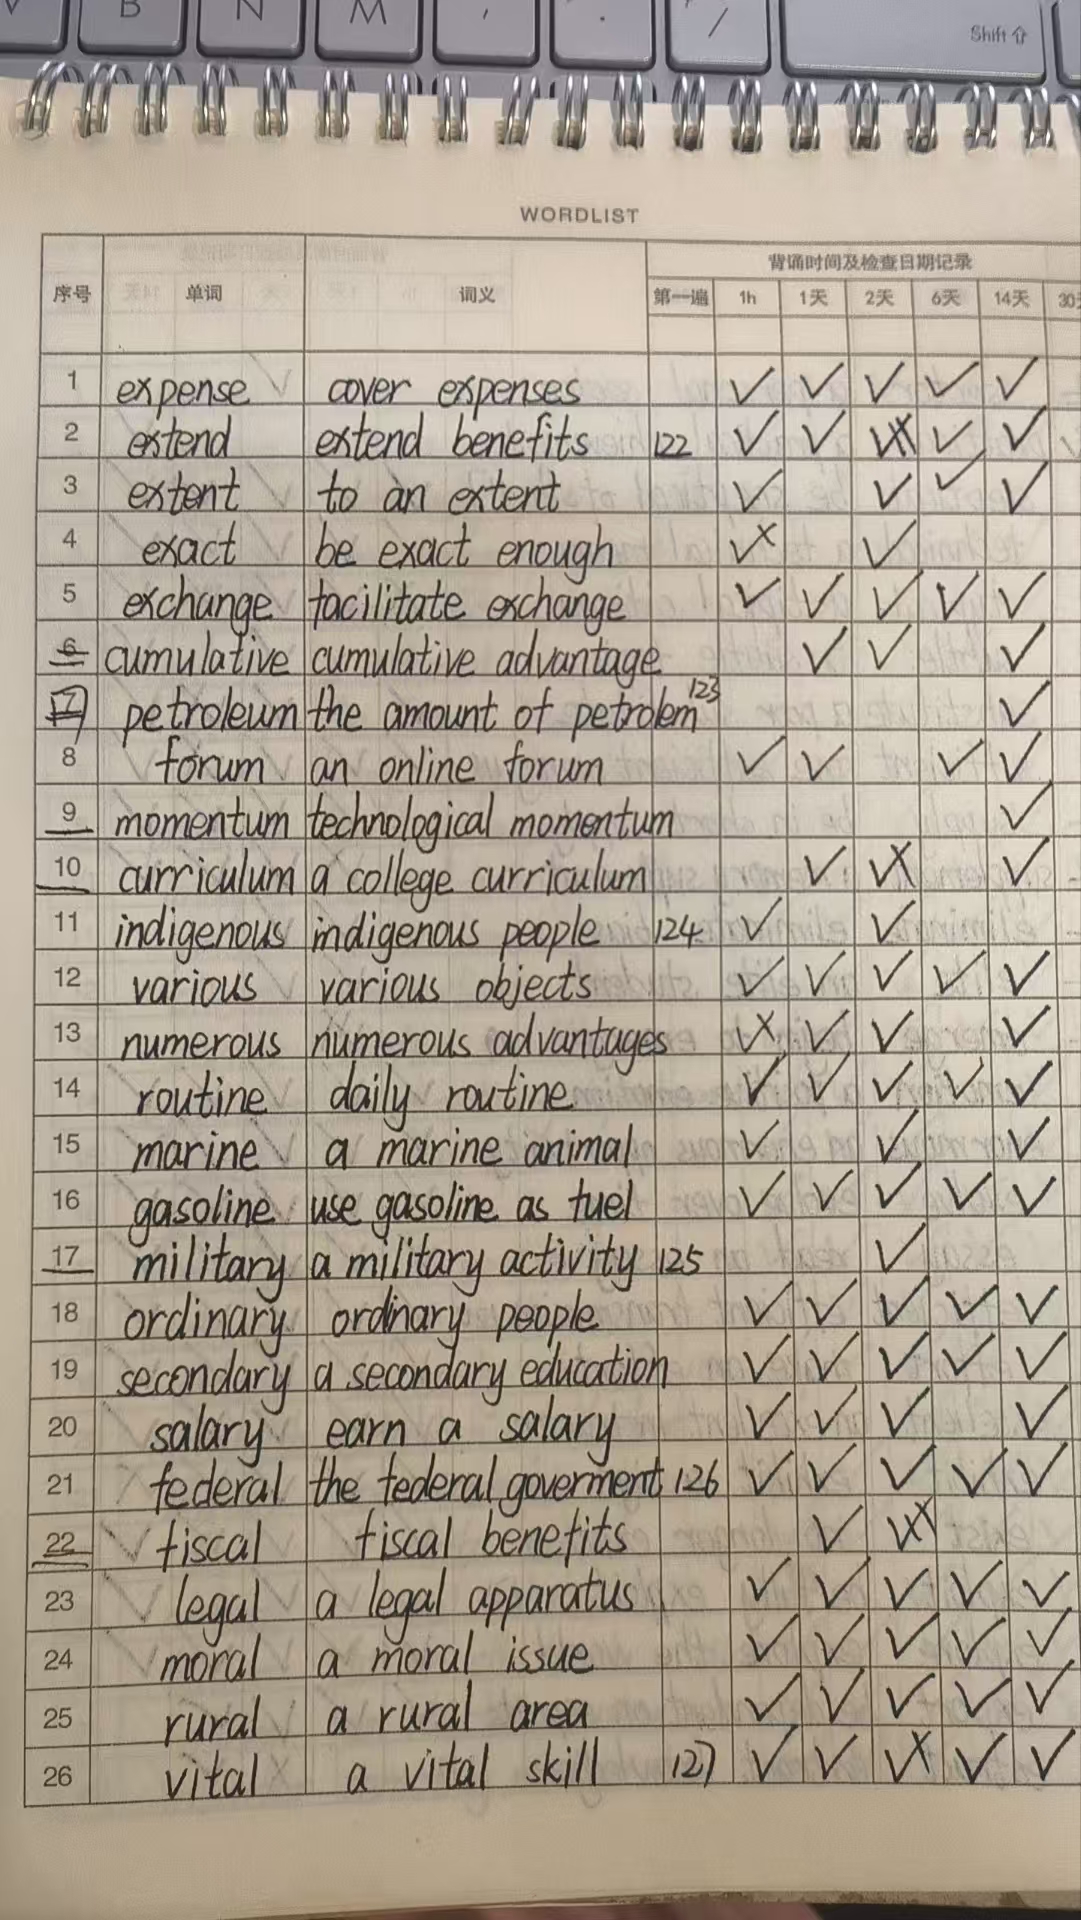 B N M , . /
Shift
WORDLIST
序号 单词 词义 背诵时间及检查日期记录
第一遍 1h 1天 2天 6天 14天
1 expense cover expenses ✓ ✓ ✓ ✓ ✓
2 extend extend benefits 122 ✓ ✓ ✓ ✓ ✓
3 extent to an extent ✓ ✓ ✓ ✓
4 exact be exact enough ✓× ✓
5 exchange facilitate exchange ✓ ✓ ✓ ✓ ✓
6 cumulative cumulative advantage ✓ ✓ ✓
7 petroleum the amount of petrolem 123 ✓
8 forum an online forum ✓ ✓ ✓ ✓
9 momentum technological momentum ✓
10 curriculum a college curriculum ✓ ✓× ✓
11 indigenous indigenous people 124 ✓ ✓
12 various various objects ✓ ✓ ✓ ✓ ✓
13 numerous numerous advantages ✓× ✓ ✓ ✓
14 routine daily routine ✓ ✓ ✓ ✓ ✓
15 marine a marine animal ✓ ✓ ✓
16 gasoline use gasoline as fuel ✓ ✓ ✓ ✓ ✓
17 military a military activity 125 ✓
18 ordinary ordinary people ✓ ✓ ✓ ✓ ✓
19 secondary a secondary education ✓ ✓ ✓ ✓ ✓
20 salary earn a salary ✓ ✓ ✓ ✓
21 federal the federal goverment 126 ✓ ✓ ✓ ✓ ✓
22 fiscal fiscal benefits ✓ ✓×
23 legal a legal apparatus ✓ ✓ ✓ ✓ ✓
24 moral a moral issue ✓ ✓ ✓ ✓ ✓
25 rural a rural area ✓ ✓ ✓ ✓ ✓
26 vital a vital skill 127 ✓ ✓ ✓× ✓ ✓